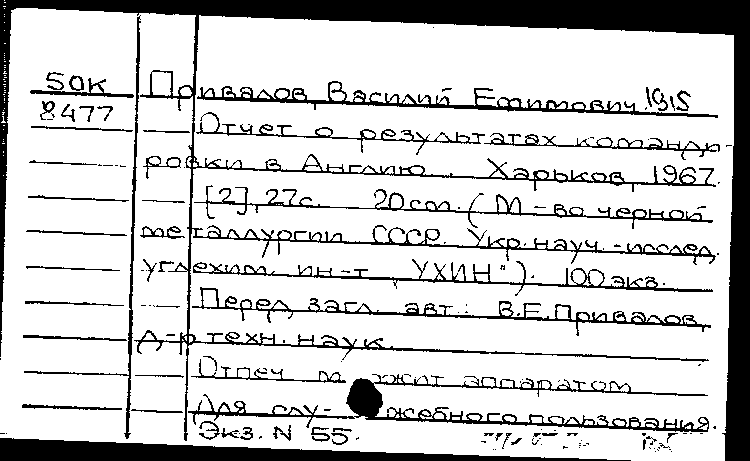 50К Привалов, Василий Ефимович. 1915
8477 Отчет о результатах команди-
ровки в Англию. Харьков, 1967.
[2], 27с. 20см. (М-во черной
металлургии СССР. Укр. науч.-исслед.
углехим. ин-т "УХИН"). 100 экз.
Перед загл. авт.: В.Е. Привалов,
д-р техн. наук.
Отпеч аппаратом
Для слу- жебного пользования.
Экз. N 55.